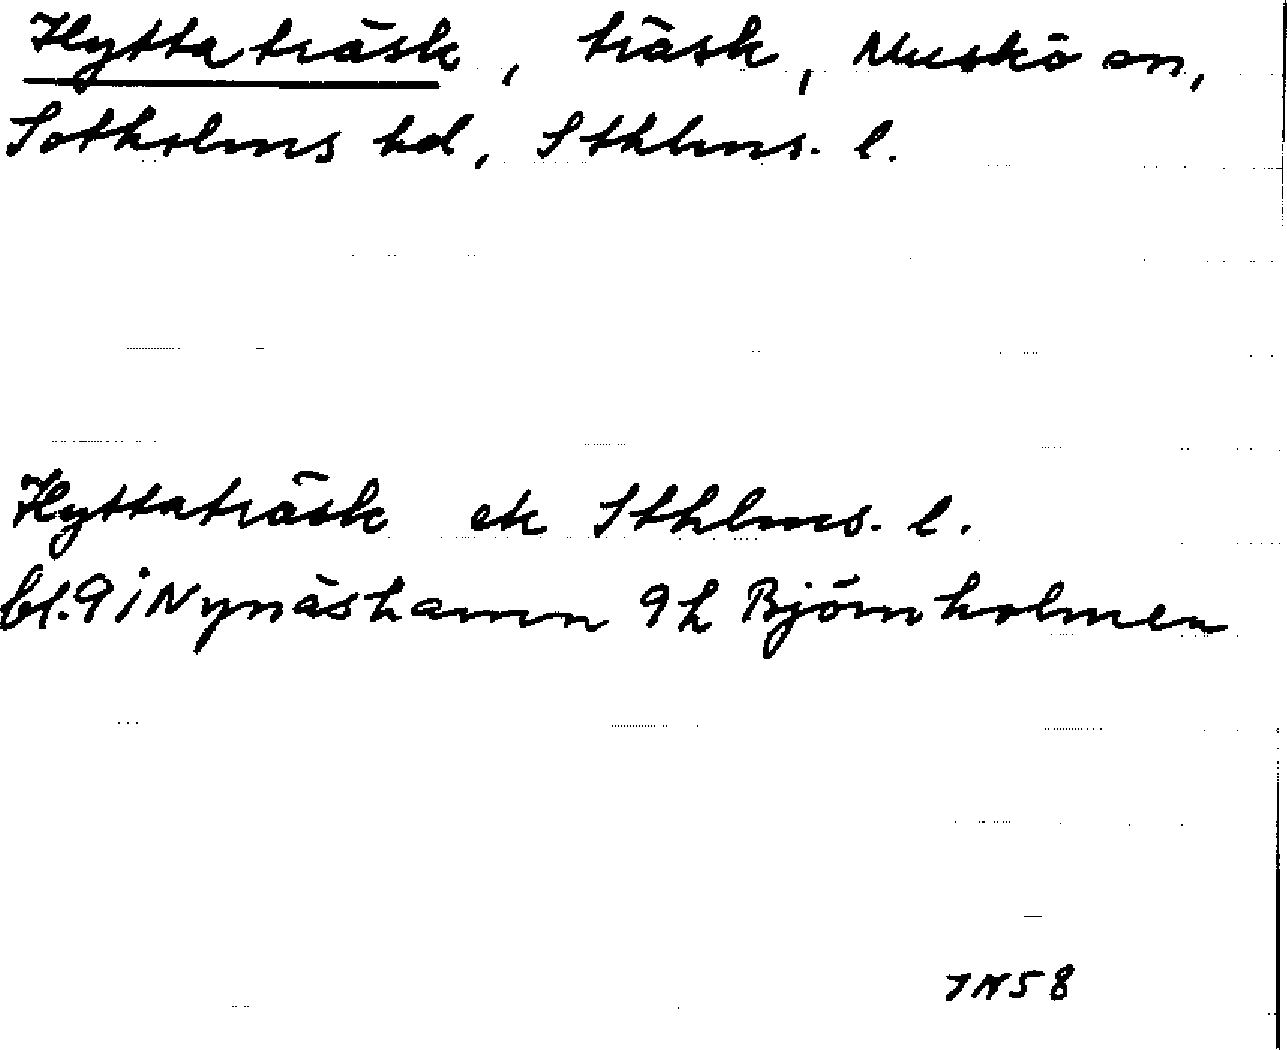 Hyttaträsk, träsk, Muskö sn,
Sotholms hd, Sthlms. l.
Hyttaträsk ek Sthlms. l.
bl. 9 i Nynäshamn 9h Björnholmen
IN58